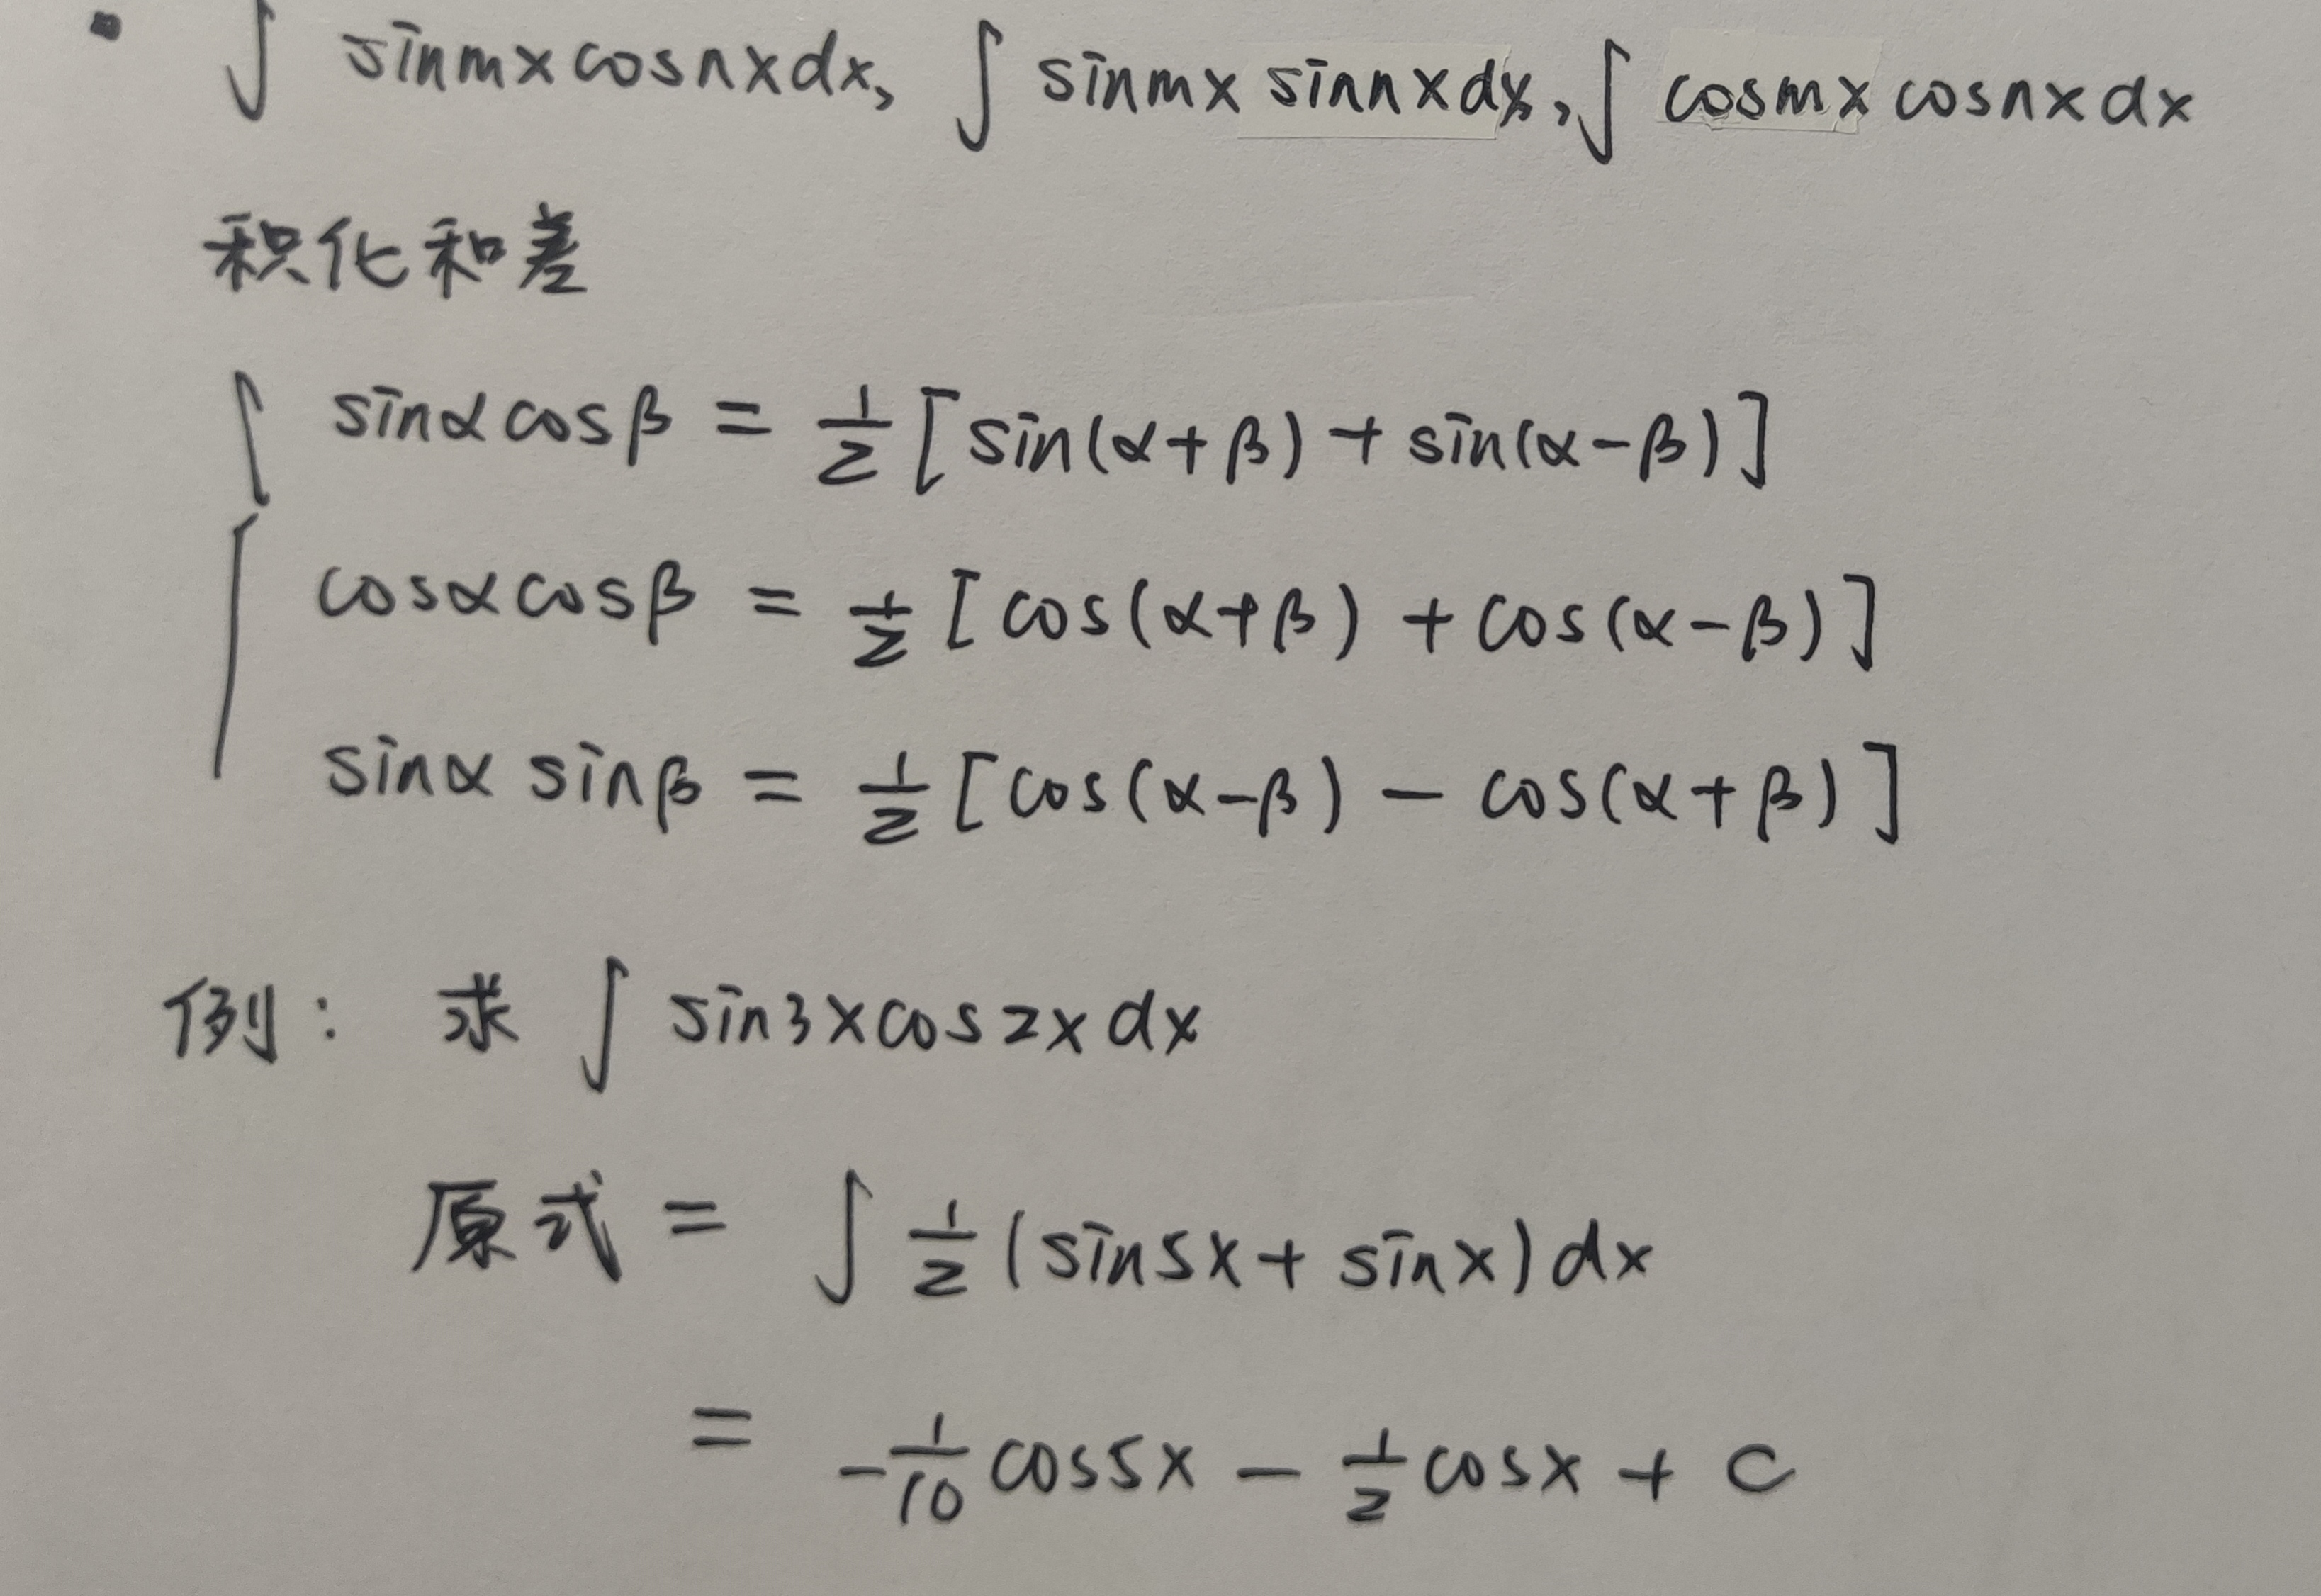 · ∫ sinmxcosnxdx, ∫ sinmx sinnxdx, ∫ cosmxcosnxdx
积化和差
sinαcosβ = 1/2 [sin(α+β) + sin(α-β)]
cosαcosβ = 1/2 [cos(α+β) + cos(α-β)]
sinα sinβ = 1/2 [cos(α-β) - cos(α+β)]
例: 求 ∫ sin3xcos2xdx
原式 = ∫ 1/2 (sin5x + sinx)dx
= -1/10 cos5x - 1/2 cosx + C